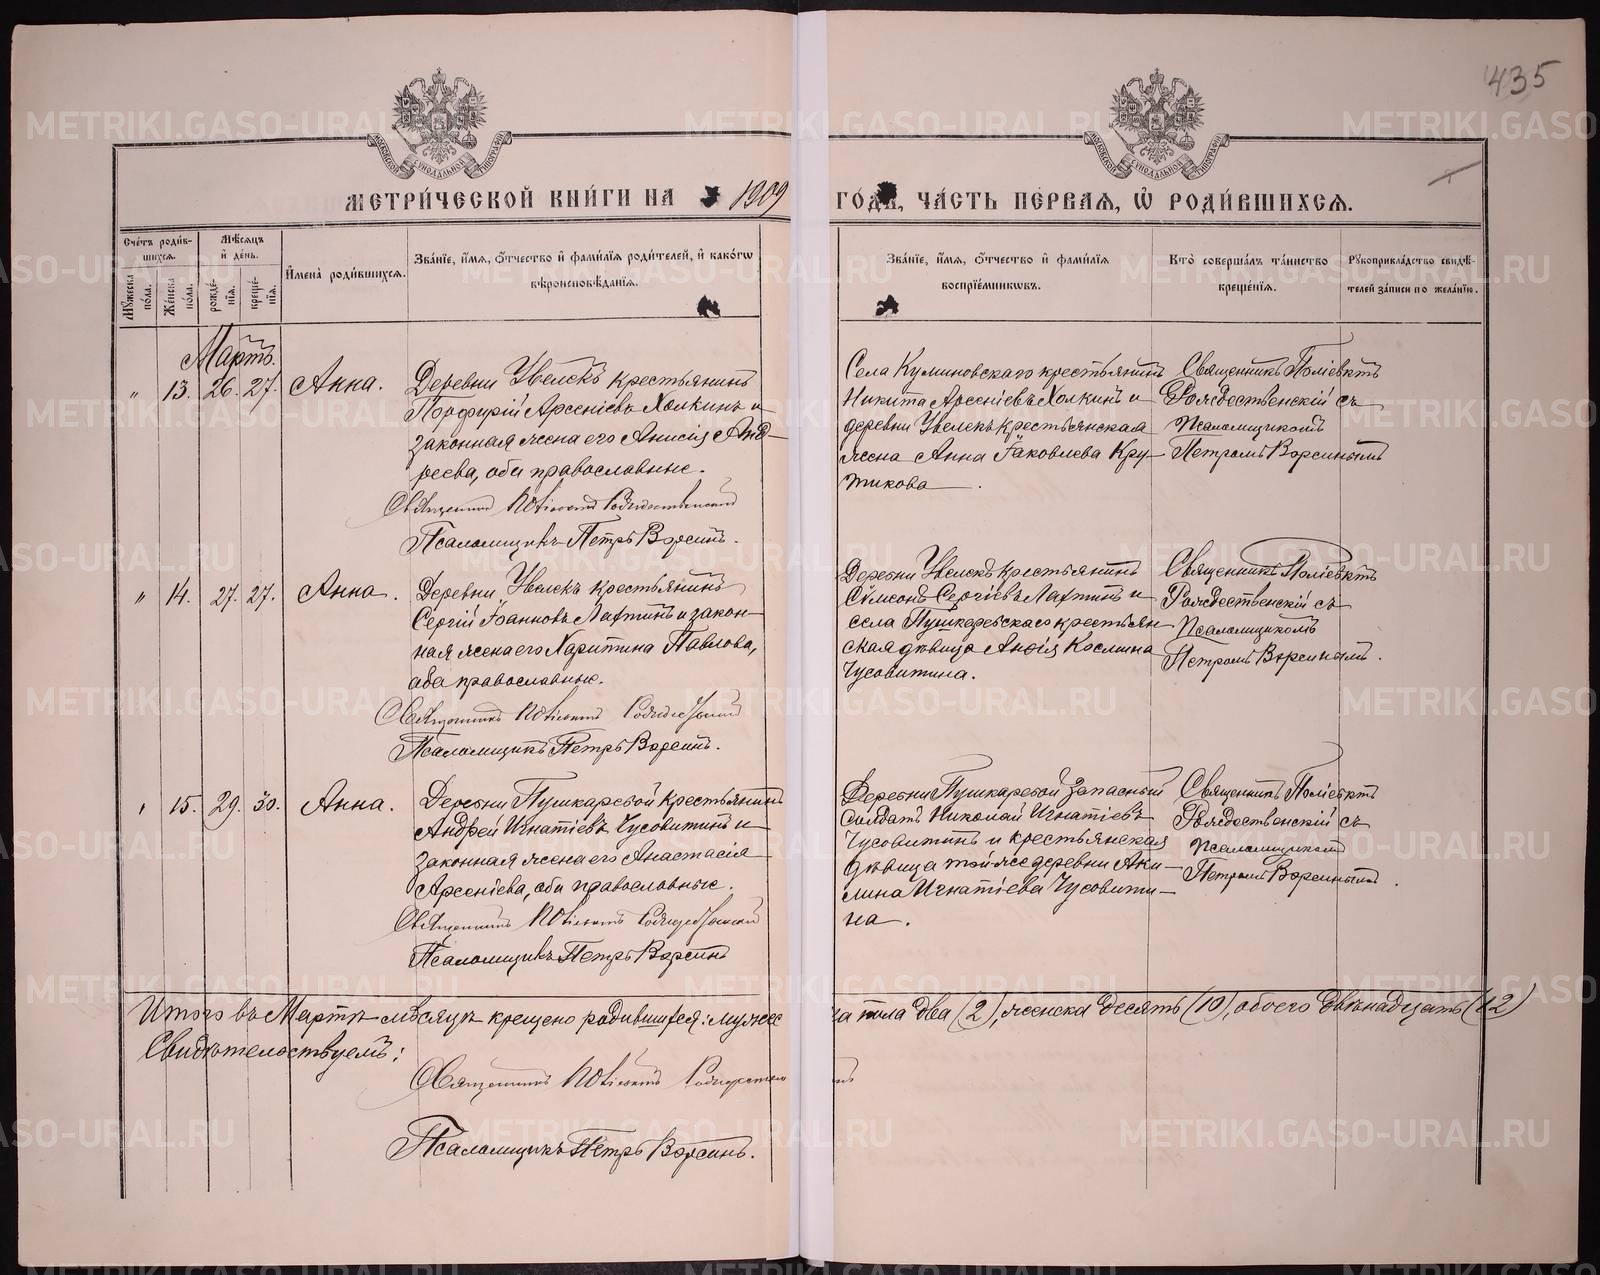 435
МОСКОВСКОЙ СѴНОДАЛЬНОЙ ТИПОГРАФІИ
МОСКОВСКОЙ СѴНОДАЛЬНОЙ ТИПОГРАФІИ
МЕТРИ́ЧЕСКОЙ КНИ́ГИ НА 1909 ГО́ДЪ, ЧА́СТЬ ПЕ́РВАѦ, Ѡ҆ РОДИ́ВШИХСѦ.
Сче́тъ роди́в-
шихсѧ.
Мꙋ́жеска по́ла.
Же́нска по́ла.
Мѣ́сѧцъ
и҆ де́нь.
рожде́-
нїѧ.
креще́-
нїѧ.
И҆мена̀ роди́вшихсѧ.
Зва́нїе, и҆́мѧ, ѻ҆́тчество и҆ фами́лїѧ роди́телей, и҆ како́гѡ
вѣроисповѣ́данїѧ.
Зва́нїе, и҆́мѧ, ѻ҆́тчество и҆ фами́лїѧ
воспрїе́мникѡвъ.
Кто̀ соверша́лъ та́инство
креще́нїѧ.
Рꙋкоприкла́дство свидѣ́-
телей за́писи по жела́нїю.
Мартъ.
" 13. 26. 27. Анна.
Деревни Увелекъ крестьянинъ
Порфирій Арсеніевъ Холкинъ и
законная жена его Анисія Анд-
реева, оба православные.
Священникъ Поліевктъ Рождественскій
Псаломщикъ Петръ Ворсинъ.
Села Крестьянинъ
Никита Арсеніевъ Холкинъ и
деревни Увелекъ крестьянская
жена Анна Іаковлева Кру-
тикова.
Священникъ Поліевктъ
Рождественскій съ
Псаломщикомъ
Петромъ Ворсинымъ
" 14. 27. 27. Анна.
Деревни Увелекъ крестьянинъ
Сергій Іоанновъ Лахтинъ и закон-
ная жена его Харитина Павлова,
оба православные.
Священникъ Поліевктъ Рождественскій
Псаломщикъ Петръ Ворсинъ.
Деревни Увелекъ крестьянинъ
Сѵмеонъ Сергіевъ Лахтинъ и
села Пушкаревскаго крестьян
ская дѣвица Анфія Космина
Чусовитина.
Священникъ Поліевктъ
Рождественскій съ
Псаломщикомъ
Петромъ Ворсинымъ.
" 15. 29. 30. Анна.
Деревни Пушкаревой крестьянинъ
Андрей Игнатіевъ Чусовитинъ и
законная жена его Анастасія
Арсеніева, оба православные.
Священникъ Поліевктъ Рождественскій
Псаломщикъ Петръ Ворсинъ
Деревни Пушкаревой запасный
солдатъ Николай Игнатіевъ
Чусовитинъ и крестьянская
дѣвица той же деревни Аки-
лина Игнатіева Чусовити-
на.
Священникъ Поліевктъ
Рождественскій съ
Псаломщикомъ
Петромъ Ворсинымъ.
Итого въ Мартѣ мѣсяцѣ крещено родившихся: мужес
ка пола два (2), женска десять (10), обоего двѣнадцать (12)
Свидѣтельствуемъ:
Священникъ Поліевктъ Рождественскій
Псаломщикъ Петръ Ворсинъ.
METRIKI.GASO-URAL.RU